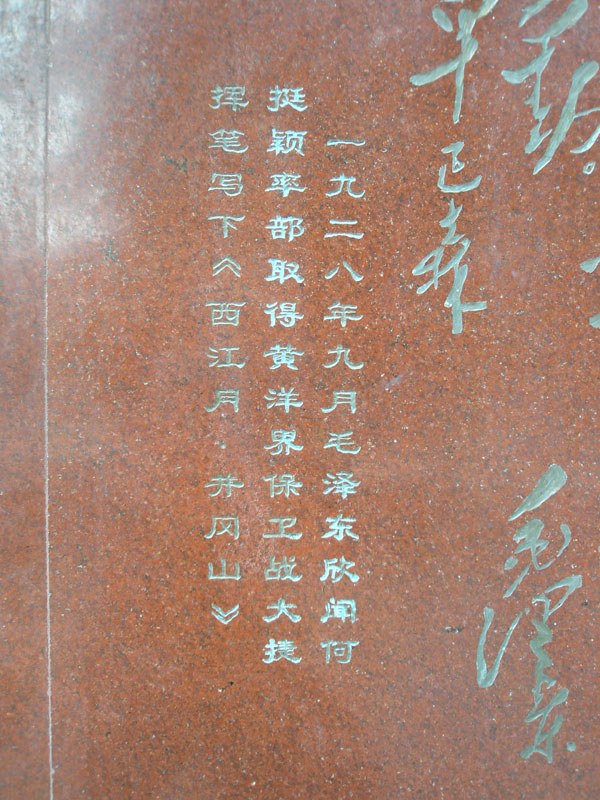 毛泽东
一九二八年九月毛泽东欣闻何
挺颖率部取得黄洋界保卫战大捷
挥笔写下《西江月·井冈山》